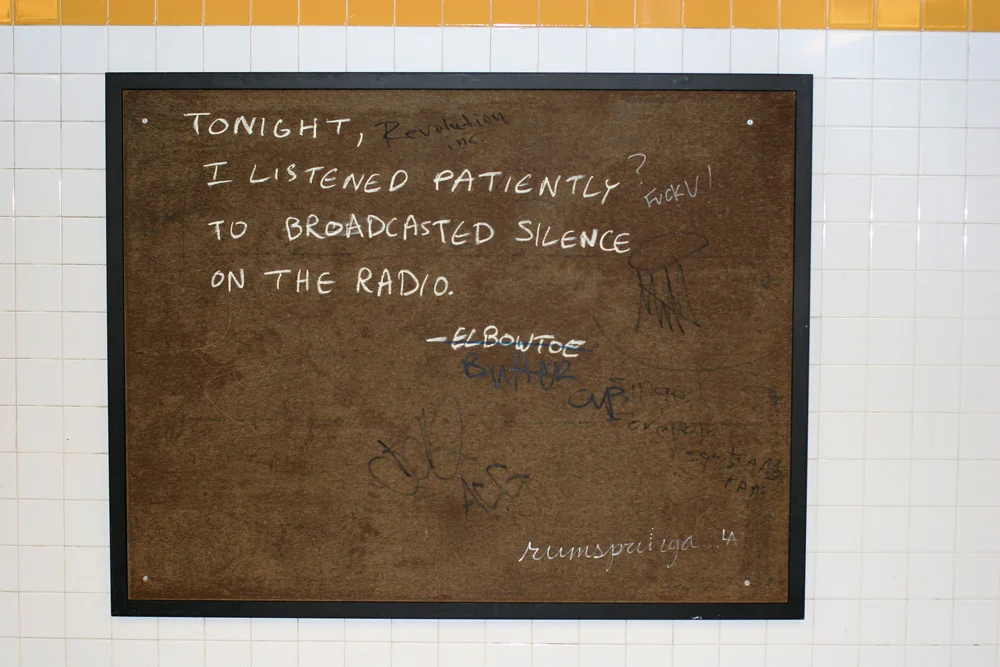 TONIGHT, Revolution
inc
I LISTENED PATIENTLY ?
FUCK U!
TO BROADCASTED SILENCE
ON THE RADIO.
-ELBOWTOE
BUTTER
CUP
ACG
rumspringa...LA